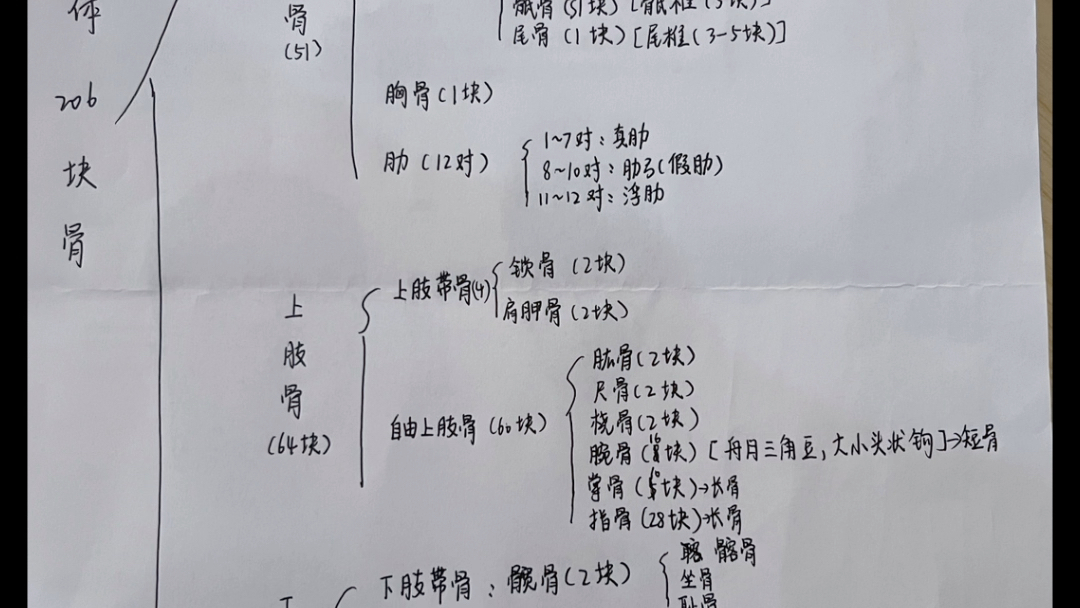 体
206
块
骨
骨
(51)
骶骨(51块)[骶椎(5块)]
尾骨(1块)[尾椎(3-5块)]
胸骨(1块)
肋(12对)
1~7对:真肋
8~10对:肋弓(假肋)
11~12对:浮肋
上
肢
骨
(64块)
上肢带骨(4)
锁骨(2块)
肩胛骨(2块)
自由上肢骨(60块)
肱骨(2块)
尺骨(2块)
桡骨(2块)
腕骨(16块)[舟月三角豆,大小头状钩]→短骨
掌骨(10块)→长骨
指骨(28块)→长骨
下肢带骨:髋骨(2块)
髂骨
坐骨
耻骨